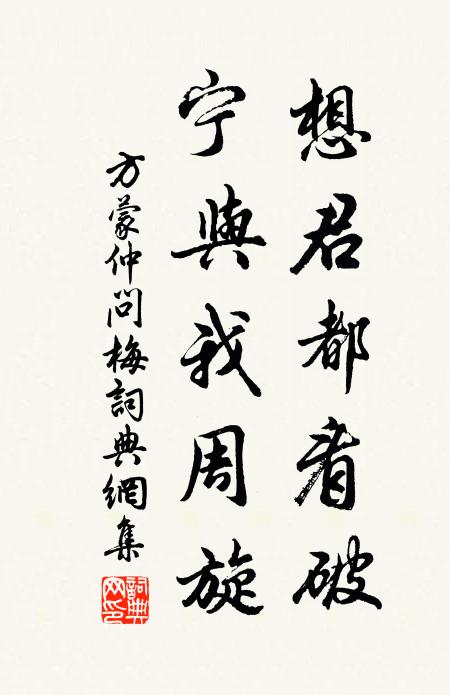 想君都看破
宁與我周旋
方蒙仲問梅詞典網集
詞典网印